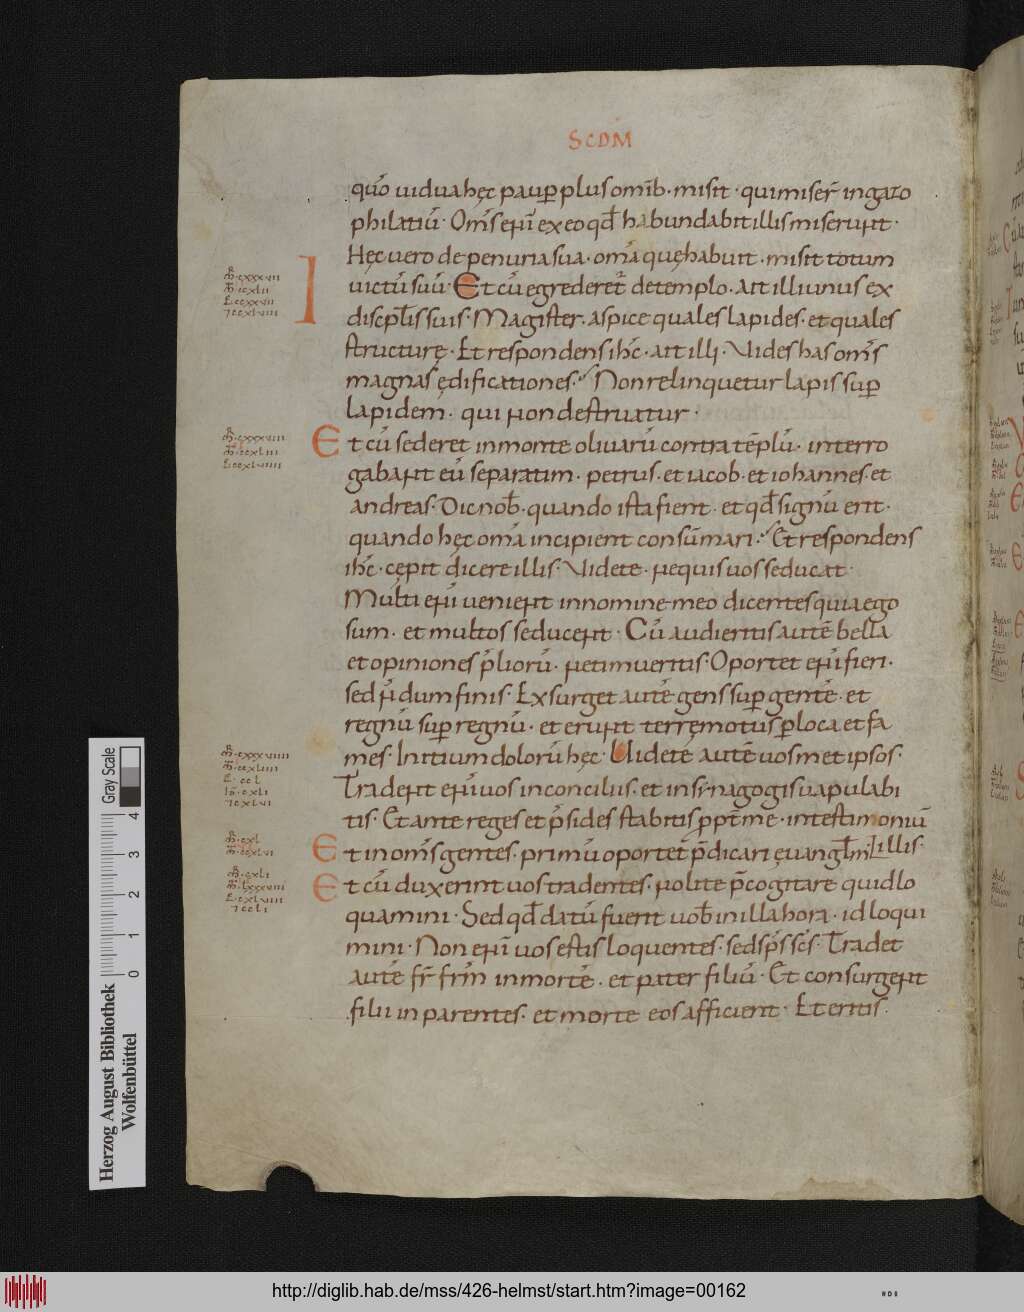 SCDM
quō uidua hęc paup plus omīb· misit· qui miser̄ in gazo
philatiū· Om̄s enī ex eo qđ habundabit illis miserunt·
Hęc uero de penuria sua· om̄a quę habuit· misit totum
uictū suū· Et cū egrederet̄ de templo· ait illi unus ex
discipl̄is suis· Magister· aspice quales lapides· et quales
structurę· Et respondens ih̄c· ait illi· Uides has om̄s
magnas ędificationes· Non relinquetur lapis sup
lapidem· qui non destruatur·
Et cū sederet in monte oliuarū contra tēplū· interro
gabant eū separatim· petrus· et iacob· et iohannes· et
andreas· Dic nob̄· quando ista fient· et qđ signū erit·
quando hęc om̄a incipient consūmari· Et respondens
ih̄c· cępit dicere illis· Uidete· ne quis uos seducat·
Multi enī uenient in nomine meo dicentes quia ego
sum· et multos seducent· Cū audieritis autē bella
et opiniones p̄liorū· ne timueritis· Oportet enī fieri·
sed n̄dum finis· Exsurget autē gens sup gentē· et
regnū sup regnū· et erunt terręmotus p loca et fa
mes· Initium dolorū hęc· Uidete autē uosmet ipsos·
Tradent enī uos in conciliis· et in synagogis uapulabi
tis· Et ante reges et p̄sides stabitis ppt̄ me· in testimoniū
illis·
Et in om̄s gentes· primū oportet p̄dicari euangl̄m
Et cū duxerint uos tradentes· nolite p̄cogitare quid lo
quamini· Sed qđ datū fuerit uob̄ in illa hora· id loqui
mini· Non enī uos estis loquentes· sed sp̄s sc̄s· Tradet
autē fr̄ fr̄m in mortē· et pater filiū· Et consurgent
filii in parentes· et morte eos afficient· Et eritis·
Gray Scale
4
3
2
1
0
Herzog August Bibliothek
Wolfenbüttel
http://diglib.hab.de/mss/426-helmst/start.htm?image=00162